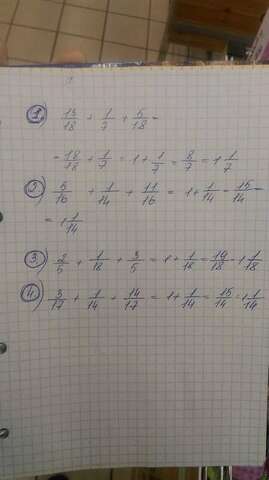 1) 13/18 + 1/7 + 5/18 =
= 18/18 + 1/7 = 1 + 1/7 = 8/7 = 1 1/7
2) 5/16 + 1/14 + 11/16 = 1 + 1/14 = 15/14 =
= 1 1/14
3) 2/5 + 1/18 + 3/5 = 1 + 1/18 = 19/18 = 1 1/18
4) 3/17 + 1/14 + 14/17 = 1 + 1/14 = 15/14 = 1 1/14